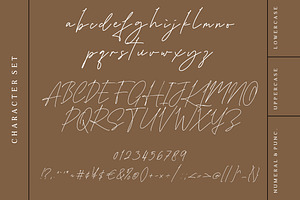 CHARACTER SET
abcdefghijklmno
pqrstuvwxyz
ABCDEFGHIJKLMNO
PQRSTUVWXYZ
0123456789
LOWERCASE
UPPERCASE
NUMERAL & PUNC.